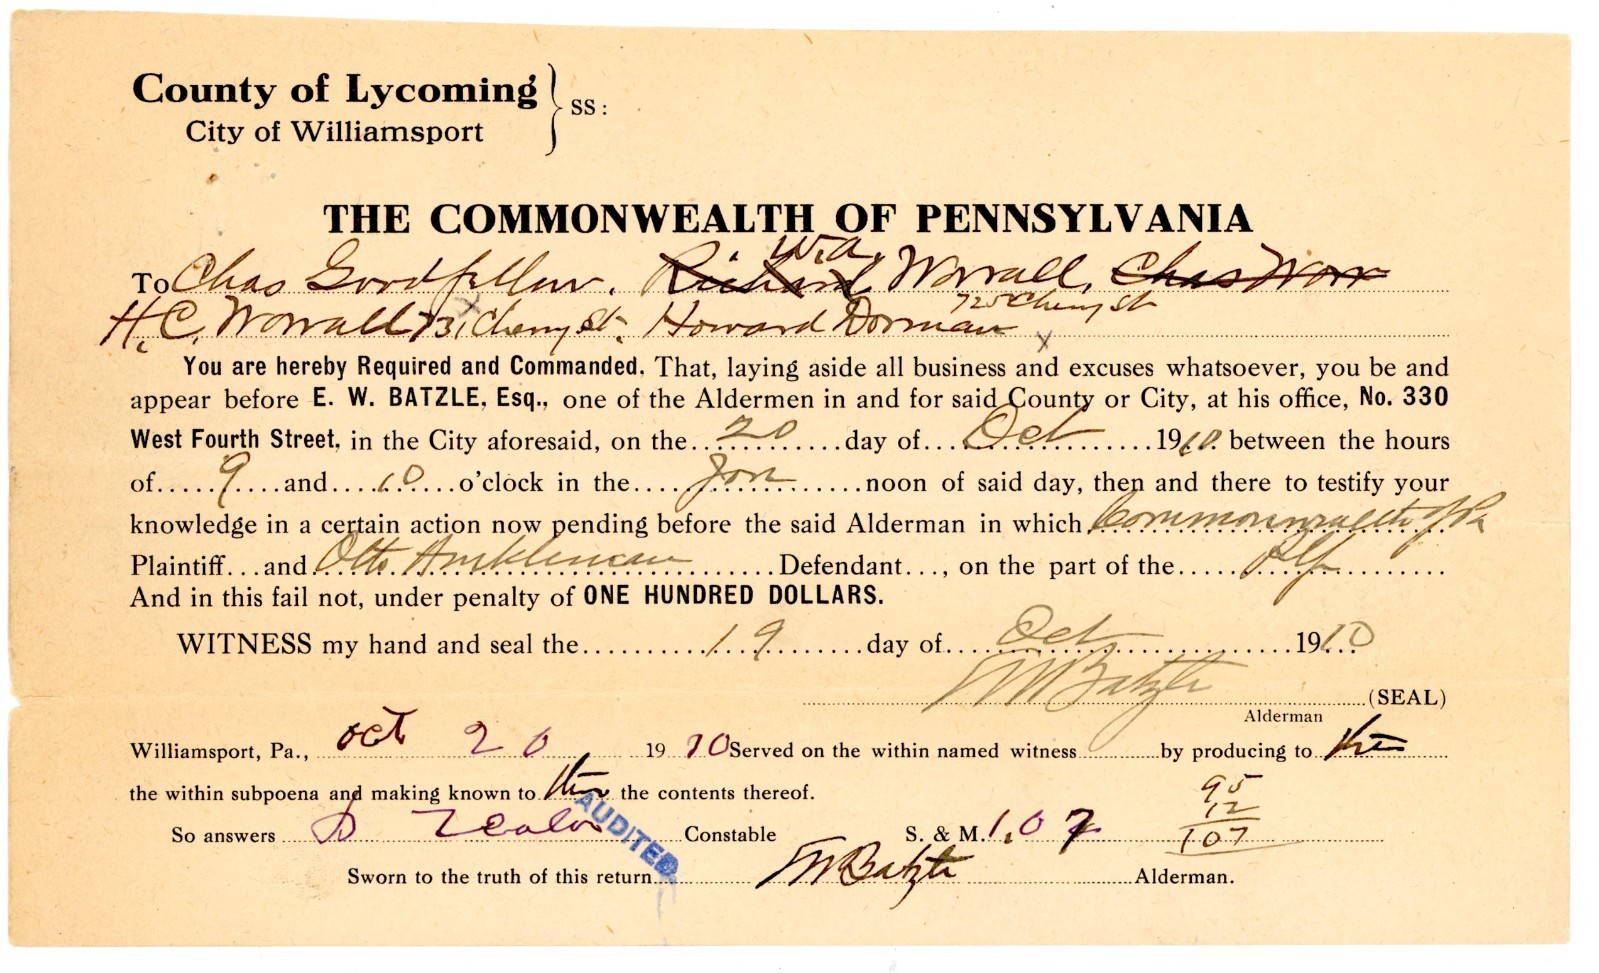 County of Lycoming } SS:
City of Williamsport
THE COMMONWEALTH OF PENNSYLVANIA
W.A.
To Chas Goodfellow, Richard Worrall, Chas Worr
725 Cherry St
H. C. Worrall 731 Cherry St, Howard Dorman
x x
You are hereby Required and Commanded, That, laying aside all business and excuses whatsoever, you be and
appear before E. W. BATZLE, Esq., one of the Aldermen in and for said County or City, at his office, No. 330
West Fourth Street, in the City aforesaid, on the 20 day of Oct 1910 between the hours
of 9 and 10 o'clock in the for noon of said day, then and there to testify your
knowledge in a certain action now pending before the said Alderman in which Commonwealth of Pa
Plaintiff...and Otto Defendant..., on the part of the Plf
And in this fail not, under penalty of ONE HUNDRED DOLLARS.
WITNESS my hand and seal the 19 day of Oct 1910
EW Batzle (SEAL)
Alderman
Williamsport, Pa., Oct 20 1910 Served on the within named witness by producing to
the within subpoena and making known to the contents thereof.
95
12
So answers Constable S. & M. 1.07 107
AUDITED
Sworn to the truth of this return EW Batzle Alderman.